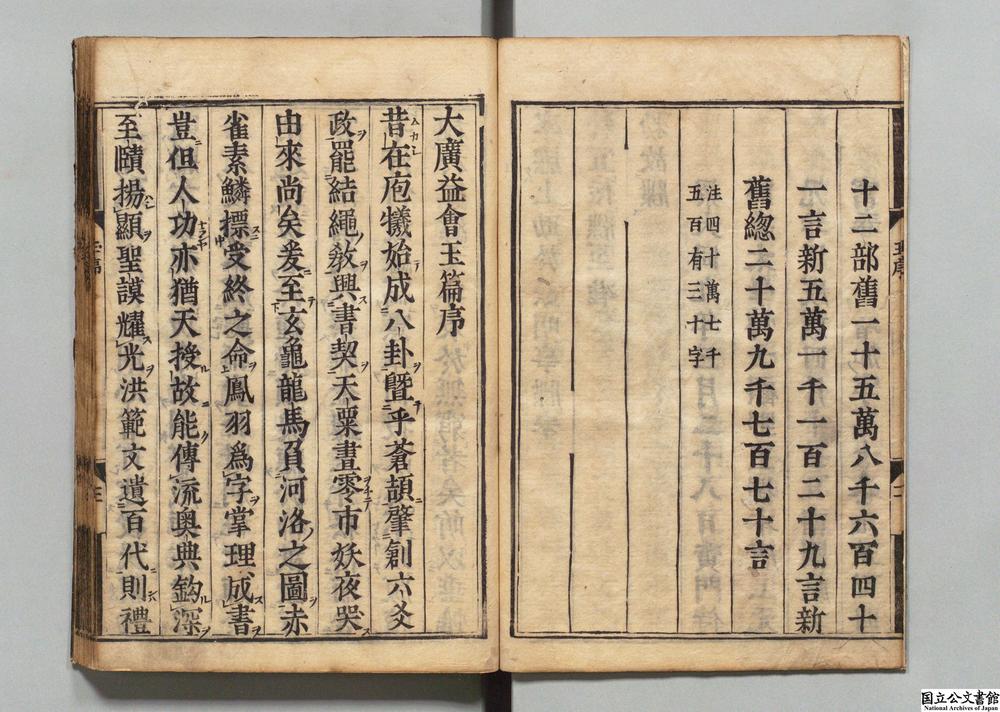 十二部舊一十五萬八千六百四十
一言新五萬一千一百二十九言新
舊總二十萬九千七百七十言
注四十萬七千
五百有三十字
大廣益會玉篇序
昔在庖犧始成八卦曁乎蒼頡肇創六爻
政罷結繩敎興書契天粟晝零市妖夜哭
由來尚矣爰至玄龜龍馬負河洛之圖赤
雀素鱗摽受終之命鳳羽爲字掌理成書
豈但人功亦猶天授故能傳流奥典鈎深
至賾揚顯聖謨耀光洪範文遺百代則禮
国立公文書館
National Archives of Japan